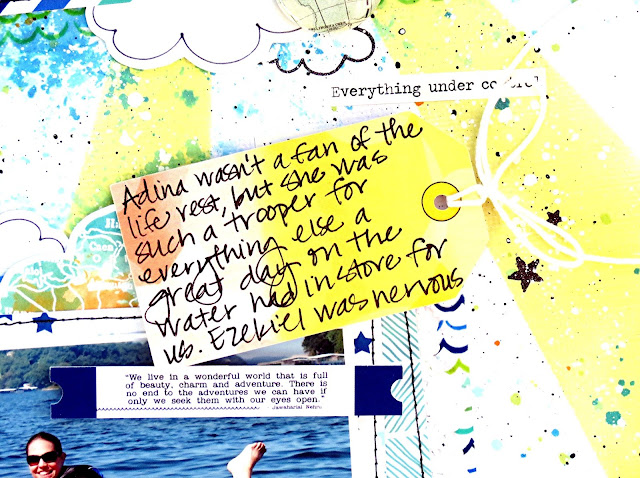 Everything under control
Adina wasn't a fan of the
life vest, but she was
such a trooper for
everything else a
great day on the
water had in store for
us. Ezekiel was nervous
"We live in a wonderful world that is full
of beauty, charm and adventure. There is
no end to the adventures we can have if
only we seek them with our eyes open."
- Jawaharlal Nehru